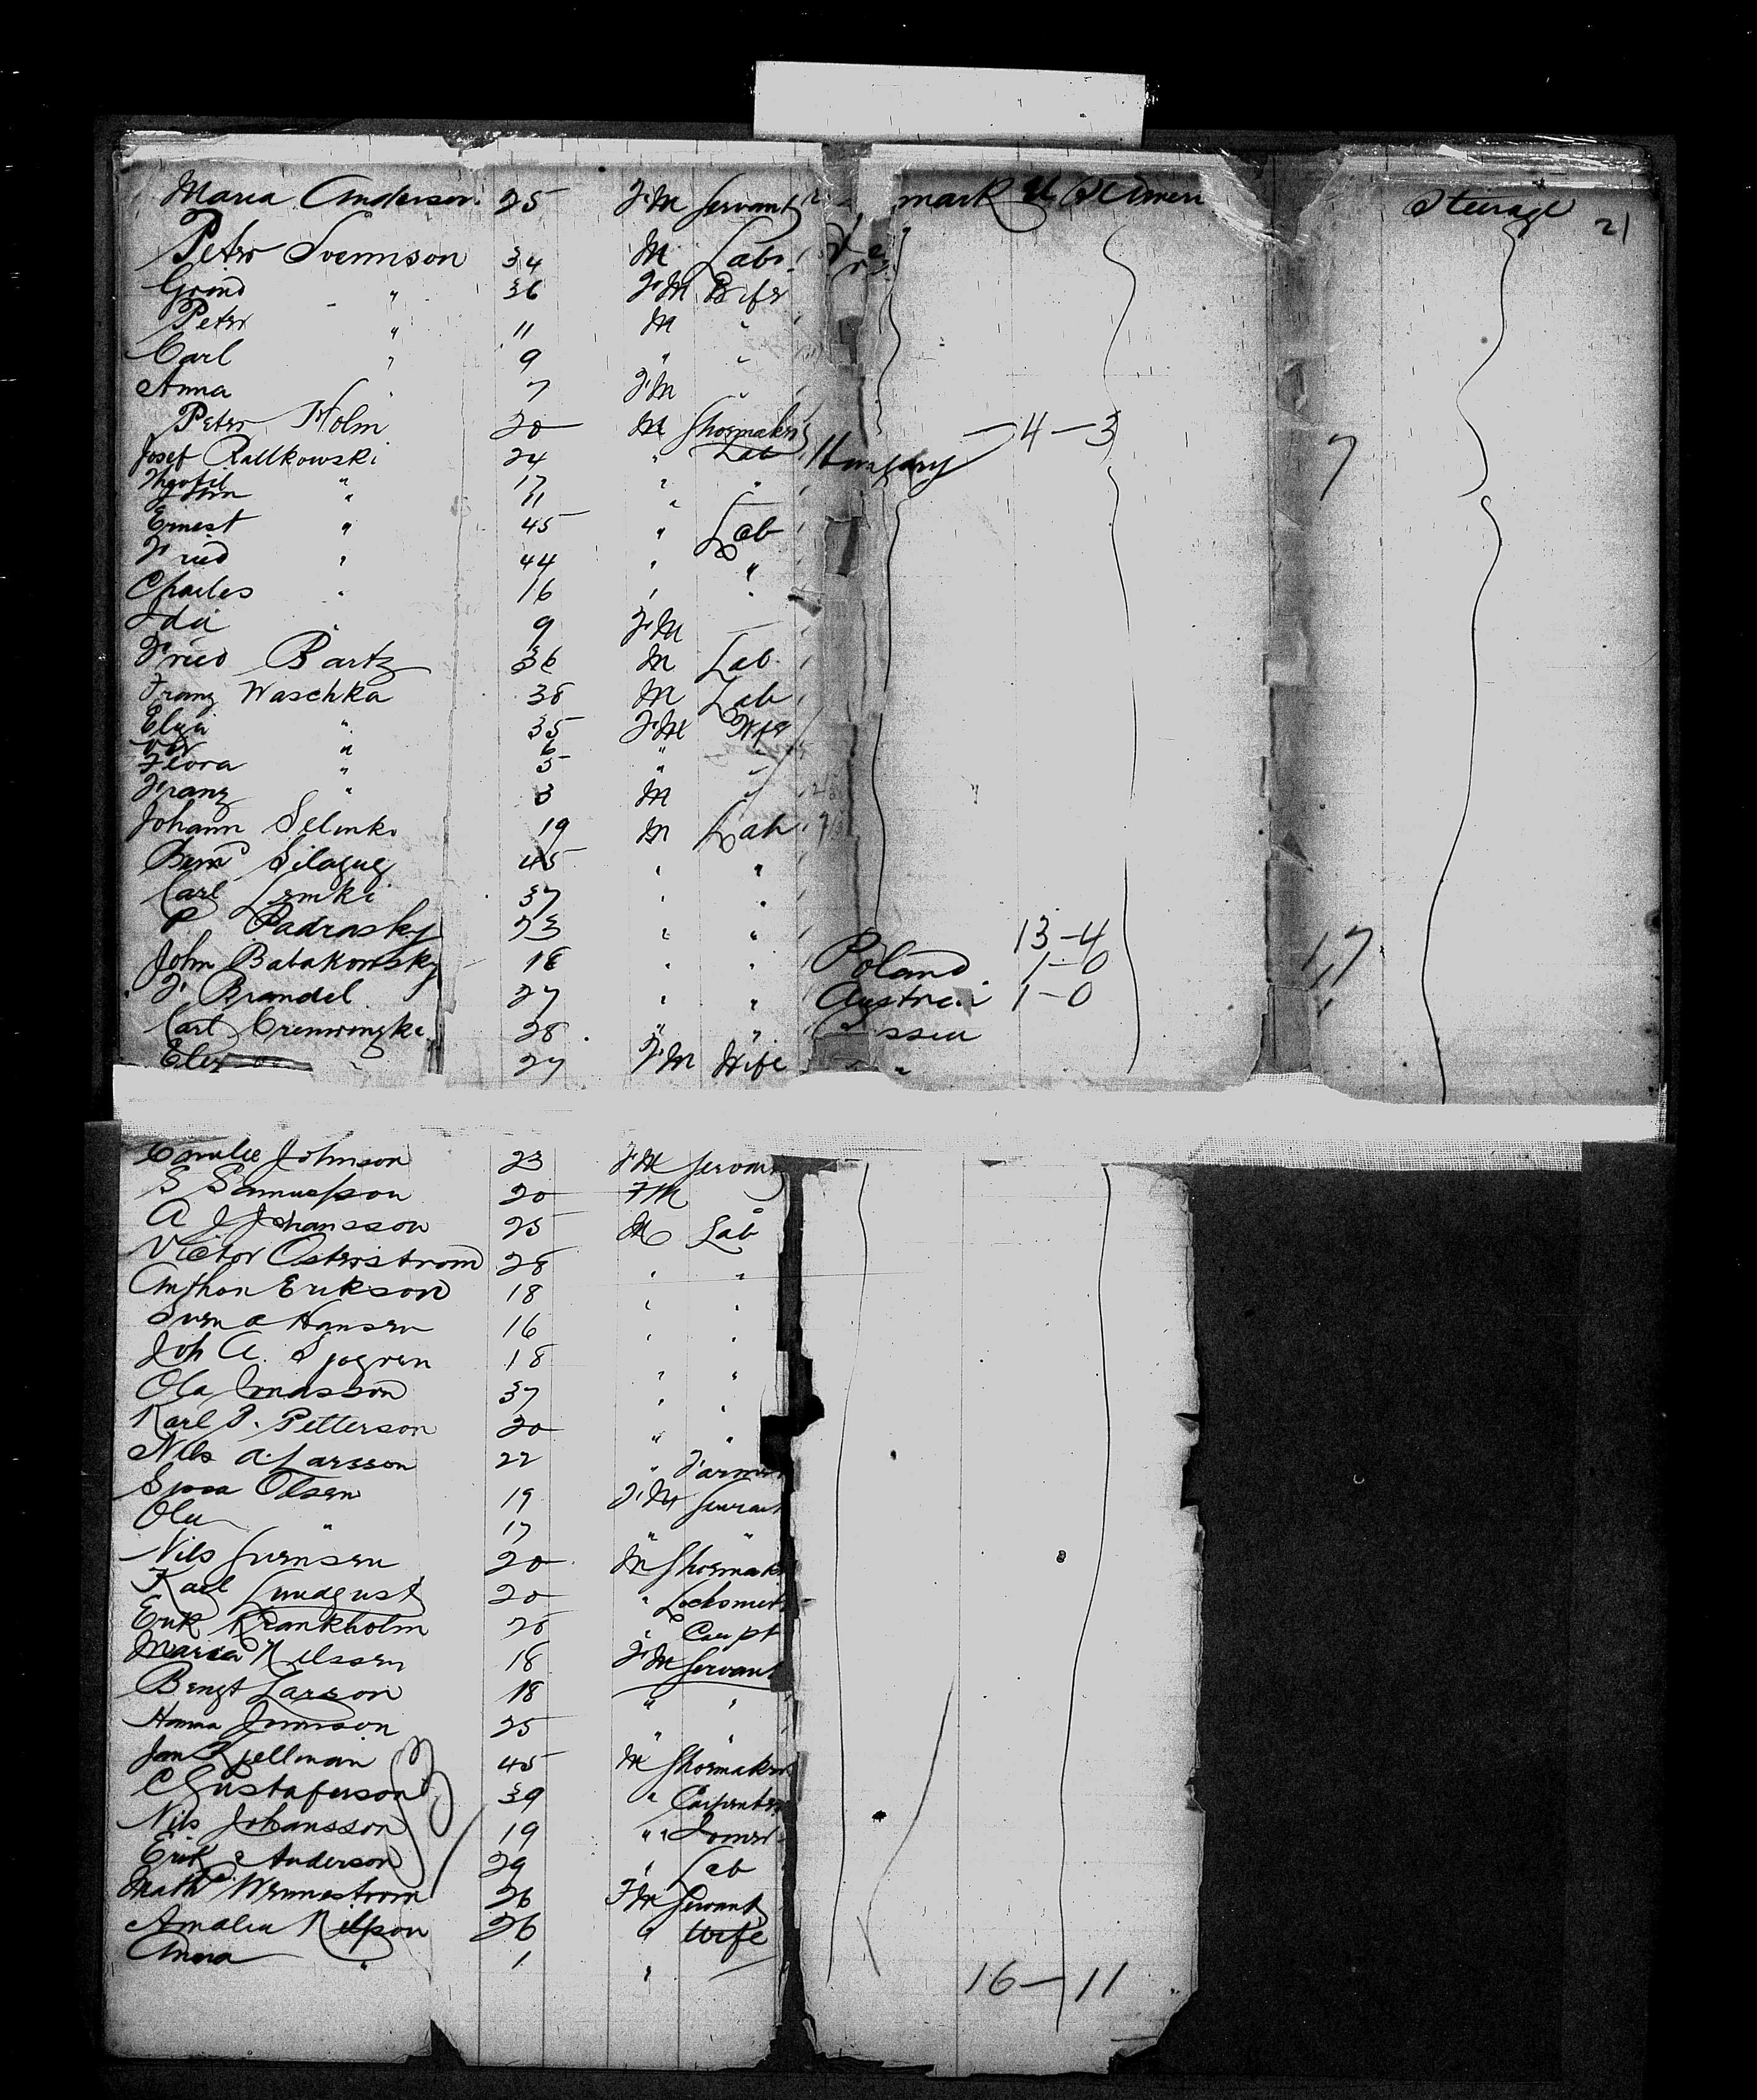 Maria Anderson 25 F.M Servant mark U S Amer Steerage 21
Peter Svennson 34 M Labr
" 36 F.M Wife
Peter " 11 M "
Carl " 9 " "
Anna " 7 F.M "
Peter Holm 20 M Shoemaker 4-3 7
Josef Rattkowski 24 " Lab Hungary
" 17 " "
John " 11 "
Ernest " 45 " Lab
Fried " 44 " "
Charles " 16 " "
Ida " 9 F.M
Fried Bartz 36 M Lab
Franz Waschka 38 M Lab
Eliza " 35 F.M Wife
" 6 "
Flora " 5 "
Franz " 3 M
Johann Selinki 19 M Lab
45 " "
Carl Lemki 37 " "
P. Padrasky 23 " " 13-4 17
John Babakowsky 18 " " Poland 1-0 1
F. Brandel 27 " " Austria 1-0 1
Carl 28 " " ssia
27 F.M Wife "
Emilie Johnson 23 F.M Servant
S Samuelson 20 F.M
A J Johansson 25 M Lab
Victor Osterstrom 28 " "
Anthon Erikson 18 " "
Sven a Hansen 16 " "
Joh A. Sjogren 18 " "
Ola Jonasson 37 " "
Karl P. Petterson 20 " "
Nils A. Larsson 22 " Farmer
Olsen 19 F.M Servant
" 17 " "
Nils Svensen 20 M Shoemak
Karl Lundqust 20 " Locksmit
Erik Krankholm 28 " Carpt
Maria Nilssen 18 F.M Servant
Bengt Larson 18 " "
Hanna Jonnson 25 " "
Jan Kjellman 45 M Shoemaker
C Gustaferson 39 " Carpenter
Nils Johansson 19 "
Erik a Anderson 29 " Lab
Math Wennestrom 26 F.M Servant
Amalia Nilson 26 " Wife
Anna " 1 "
16-11